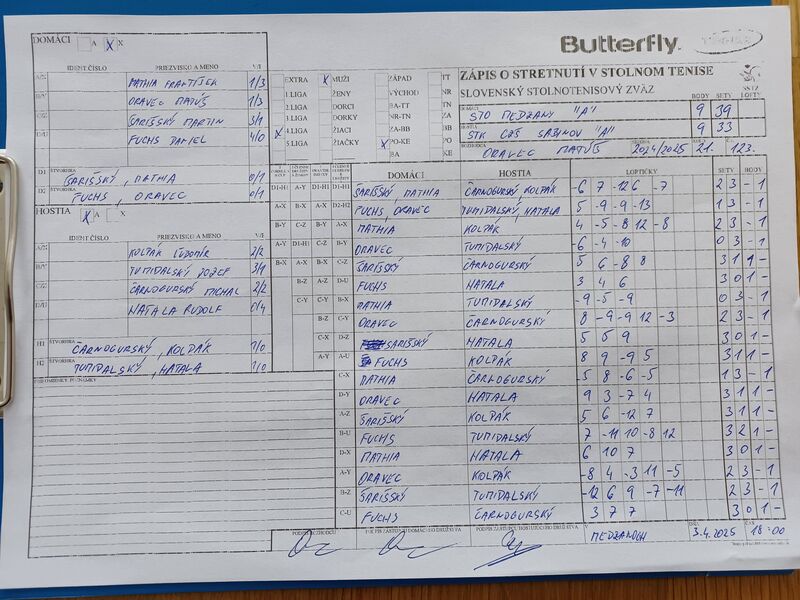 DOMÁCI A X X
Butterfly
IDENT ČÍSLO PRIEZVISKO A MENO V/P
A/X MATHIA FRANTIŠEK 1/3
B/Y ORAVEC MATÚŠ 1/3
C/Z ŠARIŠSKÝ MARTIN 3/1
D/U FUCHS DANIEL 4/0
D1 ŠTVORHRA ŠARIŠSKÝ, MATHIA 0/1
D2 ŠTVORHRA FUCHS, ORAVEC 0/1
EXTRA X MUŽI ZÁPAD TT
1.LIGA ŽENY VÝCHOD NR
2.LIGA DORCI BA-TT TN
3.LIGA DORKY NR-TN ZA
X 4.LIGA ŽIACI ZA-BB BB
5.LIGA ŽIAČKY X PO-KE PO
BA KE
ZÁPIS O STRETNUTÍ V STOLNOM TENISE
SLOVENSKÝ STOLNOTENISOVÝ ZVÄZ
BODY SETY LOPTY
DOMÁCI STO MEDZANY "A" 9 39
HOSTIA STK CVČ SABINOV "A" 9 33
ROZHODCA ORAVEC MATÚŠ 2024/2025 21. 123.
HOSTIA X A X
IDENT ČÍSLO PRIEZVISKO A MENO V/P
KOLPÁK ĽUBOMÍR 2/2
TUMIDALSKÝ JOZEF 3/1
ČARNOGURSKÝ MICHAL 2/2
HATALA RUDOLF 0/4
H1 ŠTVORHRA ČARNOGURSKÝ, KOLPÁK 1/0
H2 ŠTVORHRA TUMIDALSKÝ, HATALA 1/0
PRIPOMIENKY, POZNÁMKY
DOMÁCI HOSTIA LOPTIČKY SETY BODY
D1-H1 A-Y D1-H1 D1-H1 ŠARIŠSKÝ, MATHIA ČARNOGURSKÝ KOLPÁK -6 7 -12 6 -7 2 3 - 1
A-X B-X A-X D2-H2 FUCHS, ORAVEC TUMIDALSKÝ, HATALA 5 -9 -9 -13 1 3 - 1
B-Y C-Z B-Y A-X MATHIA KOLPÁK 4 -5 -8 12 -8 2 3 - 1
A-Y D1-H1 C-Z B-Y ORAVEC TUMIDALSKÝ -6 -4 -10 0 3 - 1
B-X A-X B-X C-Z ŠARIŠSKÝ ČARNOGURSKÝ 5 6 -8 8 3 1 1 -
B-Z A-Z D-U FUCHS HATALA 3 4 6 3 0 1 -
C-Y C-Y MATHIA TUMIDALSKÝ -9 -5 -9 0 3 - 1
B-Z ORAVEC ČARNOGURSKÝ 8 -9 -9 12 -3 2 3 - 1
C-X D-Z ŠARIŠSKÝ HATALA 5 5 9 3 0 1 -
A-Y A-U FUCHS KOLPÁK 8 9 -9 5 3 1 1 -
C-X MATHIA ČARNOGURSKÝ 5 -8 -6 -5 1 3 - 1
D-Y ORAVEC HATALA 9 3 -7 4 3 1 1 -
A-Z ŠARIŠSKÝ KOLPÁK 5 6 -12 7 3 1 1 -
B-U FUCHS TUMIDALSKÝ 7 -11 10 -8 12 3 2 1 -
D-X MATHIA HATALA 6 10 7 3 0 1 -
A-Y ORAVEC KOLPÁK -8 4 -3 11 -5 2 3 - 1
B-Z ŠARIŠSKÝ TUMIDALSKÝ -12 6 9 -7 -11 2 3 - 1
C-U FUCHS ČARNOGURSKÝ 3 7 7 3 0 1 -
PODPIS ROZHODCU PODPIS ZÁSTUPCU DOMÁCEHO DRUŽSTVA PODPIS ZÁSTUPCU HOSŤUJÚCEHO DRUŽSTVA V MEDZANOCH DŇA 3.4.2025 ČAS 18:00